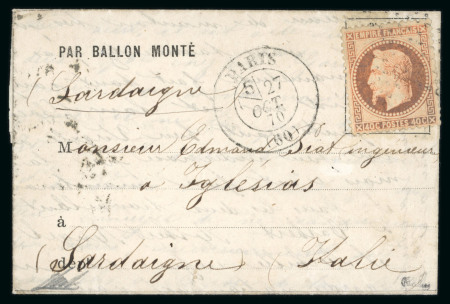 PAR BALLON MONTÉ
(Sardaigne)
PARIS
5E 27
OCT.
70
(60)
EMPIRE FRANÇAIS
40C POSTES 40C
Monsieur Edmond Siat ingenieur
a Iglesias
à
(Sardaigne) Italie